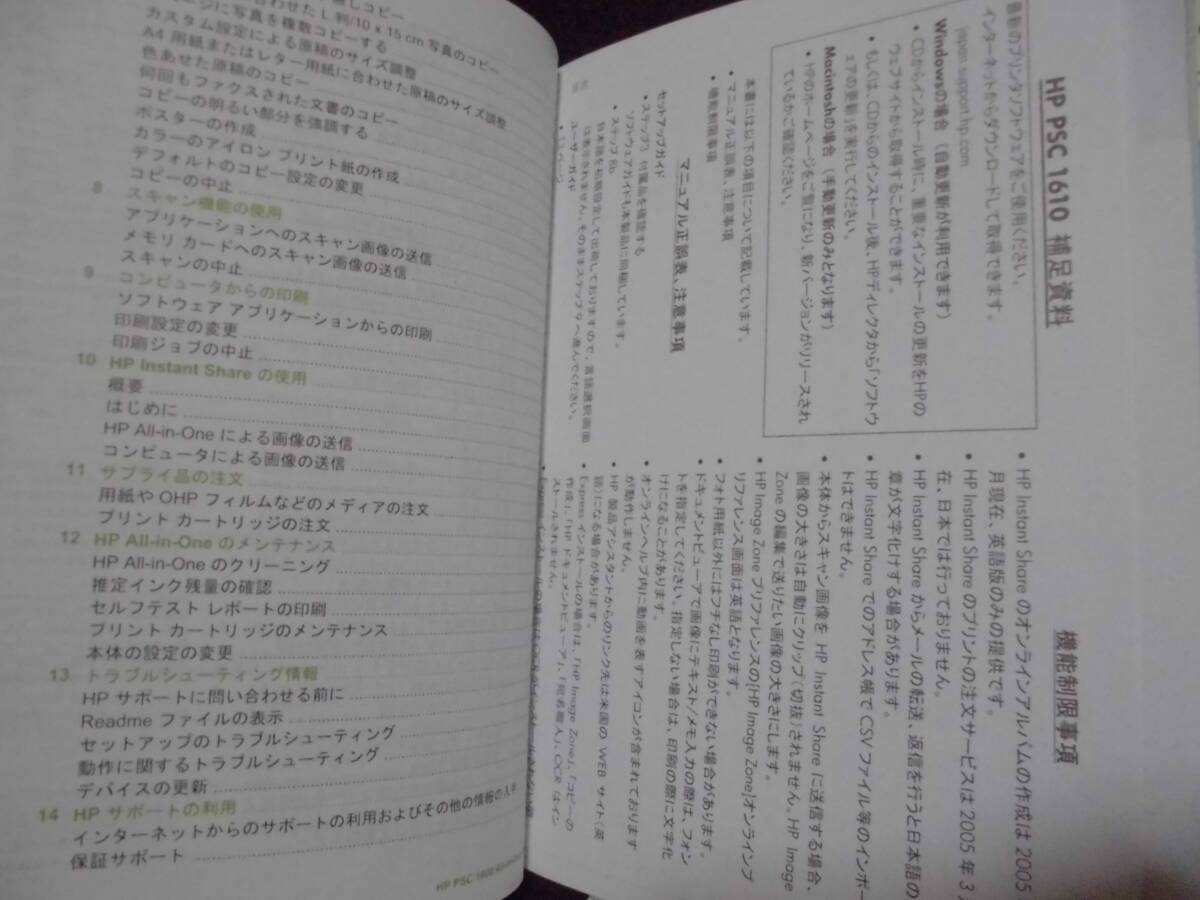 しコピー
合わせた L 判/10 x 15 cm 写真のコピー
ージに写真を複数コピーする
カスタム設定による原稿のサイズ調整
A4 用紙またはレター用紙に合わせた原稿のサイズ調整
色あせた原稿のコピー
何回もファクスされた文書のコピー
コピーの明るい部分を強調する
ポスターの作成
カラーのアイロン プリント紙の作成
デフォルトのコピー設定の変更
コピーの中止
8 スキャン機能の使用
アプリケーションへのスキャン画像の送信
メモリ カードへのスキャン画像の送信
スキャンの中止
9 コンピュータからの印刷
ソフトウェア アプリケーションからの印刷
印刷設定の変更
印刷ジョブの中止
10 HP Instant Share の使用
概要
はじめに
HP All-in-One による画像の送信
コンピュータによる画像の送信
11 サプライ品の注文
用紙や OHP フィルムなどのメディアの注文
プリント カートリッジの注文
12 HP All-in-One のメンテナンス
HP All-in-One のクリーニング
推定インク残量の確認
セルフテスト レポートの印刷
プリント カートリッジのメンテナンス
本体の設定の変更
13 トラブルシューティング情報
HP サポートに問い合わせる前に
Readme ファイルの表示
セットアップのトラブルシューティング
動作に関するトラブルシューティング
デバイスの更新
14 HP サポートの利用
インターネットからのサポートの利用およびその他の情報の入手
保証サポート
HP PSC 1600
HP PSC 1610 補足資料
最新のプリンタソフトウェアをご使用ください。
インターネットからダウンロードして取得できます。
japan.support.hp.com
Windowsの場合（自動更新が利用できます）
・CDからインストール時に、重要なインストールの更新をHPの
ウェブサイトから取得することができます。
・もしくは、CDからのインストール後、HPディレクタから「ソフトウ
ェアの更新」を実行してください。
Macintoshの場合（手動更新のみとなります）
・HPのホームページをご覧になり、新バージョンがリリースされ
ているかご確認ください。
本書には以下の項目について記載しています。
・マニュアル正誤表、注意事項
・機能制限事項
マニュアル正誤表、注意事項
セットアップガイド
・ステップ3 付属品を確認する
ソフトウェアガイドも本製品に同梱しています。
・ステップ 8b
日本語を初期設定して出荷しておりますので、言語選択画面
は表示されません。そのままステップ 9 へ進んでください。
ユーザーガイド
機能制限事項
・HP Instant Share のオンラインアルバムの作成は 2005
月現在、英語版のみの提供です。
・HP Instant Share のプリントの注文サービスは 2005 年 3
在、日本では行っておりません。
・HP Instant Share からメールの転送、返信を行うと日本語の
章が文字化けする場合があります。
・HP Instant Share でのアドレス帳で CSV ファイル等のインポー
トはできません。
・本体からスキャン画像を HP Instant Share に送信する場合、
画像の大きさは自動にクリップ（切抜）されません。HP Image
Zone の編集で送りたい画像の大きさにします。
・HP Image Zone プリファレンスの[HP Image Zone]オンラインプ
リファレンス画面は英語となります。
・フォト用紙以外にはフチなし印刷ができない場合があります。
・ドキュメントビューアで画像にテキスト/メモ入力の際は、フォン
トを指定してください。指定しない場合は、印刷の際に文字化
けになることがあります。
・オンラインヘルプ内に動画を表すアイコンが含まれております
が動作しません。
・HP 製品アシスタントからのリンク先は米国の WEB サイト（英
語）になる場合があります。
・Express インストールの場合は、「HP Image Zone」、「コピーの
作成」、「HP ドキュメントビューア」、「宛名職人」、OCR はイン
ストールされません。